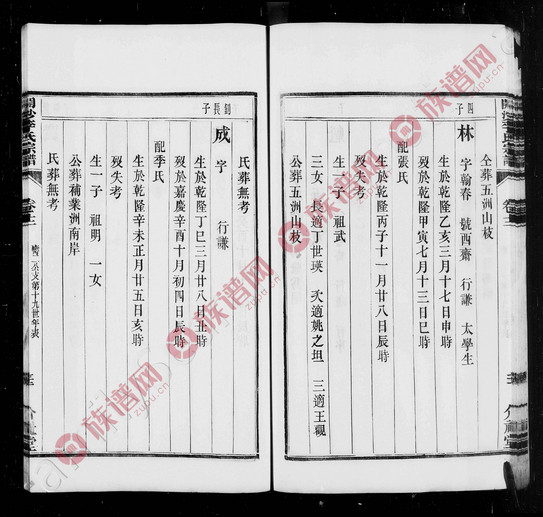 仝葬五洲山枝
四子
林 字翰春 號西齋 行謙 太學生
生於乾隆乙亥三月十七日申時
歿於乾隆甲寅七月十三日巳時
配張氏
生於乾隆丙子十一月廿八日辰時
歿失考
生一子 祖武
三女 長適丁世瑛 次適姚之坦 三適王觀
公葬五洲山枝
氏葬無考
釗長子
成 字 行謙
生於乾隆丁巳三月廿八日丑時
歿於嘉慶辛酉十月初四日辰時
配季氏
生於乾隆辛未正月廿五日亥時
歿失考
生一子 祖明 一女
公葬補業洲南岸
氏葬無考
族谱网
zupu.cn